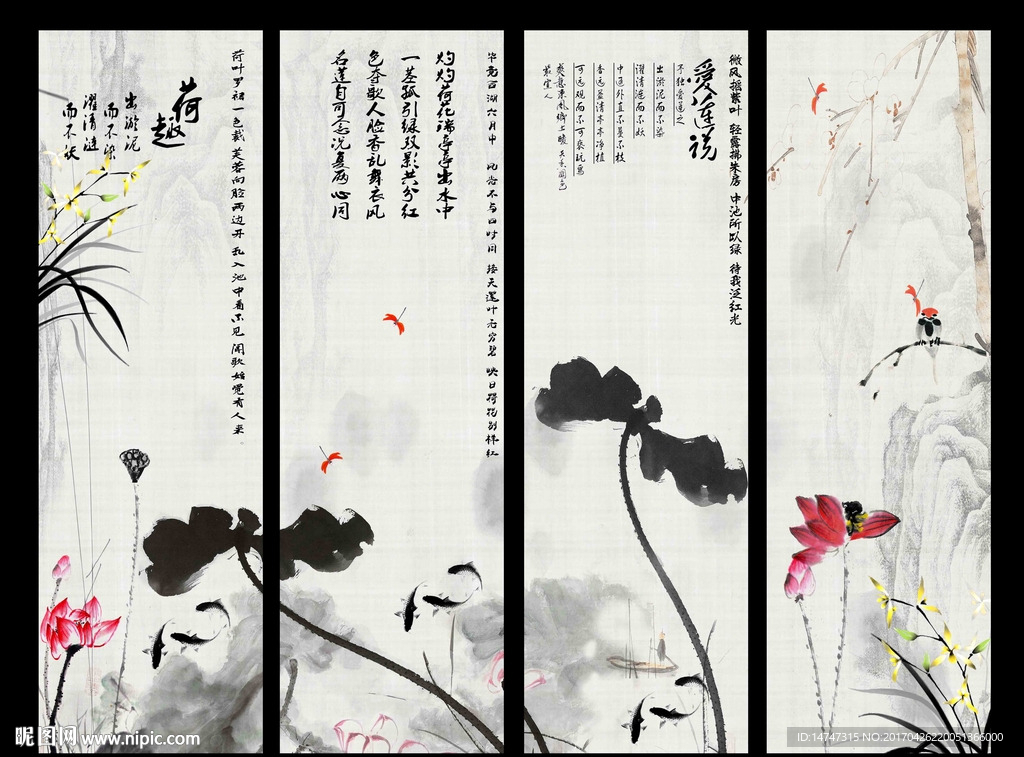 荷叶罗裙一色裁 芙蓉向脸两边开 乱入池中看不见 闻歌始觉有人来
荷趣
出淤泥
而不染
濯清涟
而不妖
毕竟西湖六月中 风光不与四时同 接天莲叶无穷碧 映日荷花别样红
灼灼荷花瑞亭亭出水中
一茎孤引绿双影共分红
色夺歌人脸香乱舞衣风
名莲自可念况复两心同
微风摇紫叶 轻露拂朱房 中池所以绿 待我泛红光
愛莲说
不独爱莲之
出淤泥而不染
濯清涟而不妖
中通外直不蔓不枝
香远益清亭亭净植
可远观而不可亵玩焉
昵图网 www.nipic.com
ID:14747315 NO:20170426220051366000